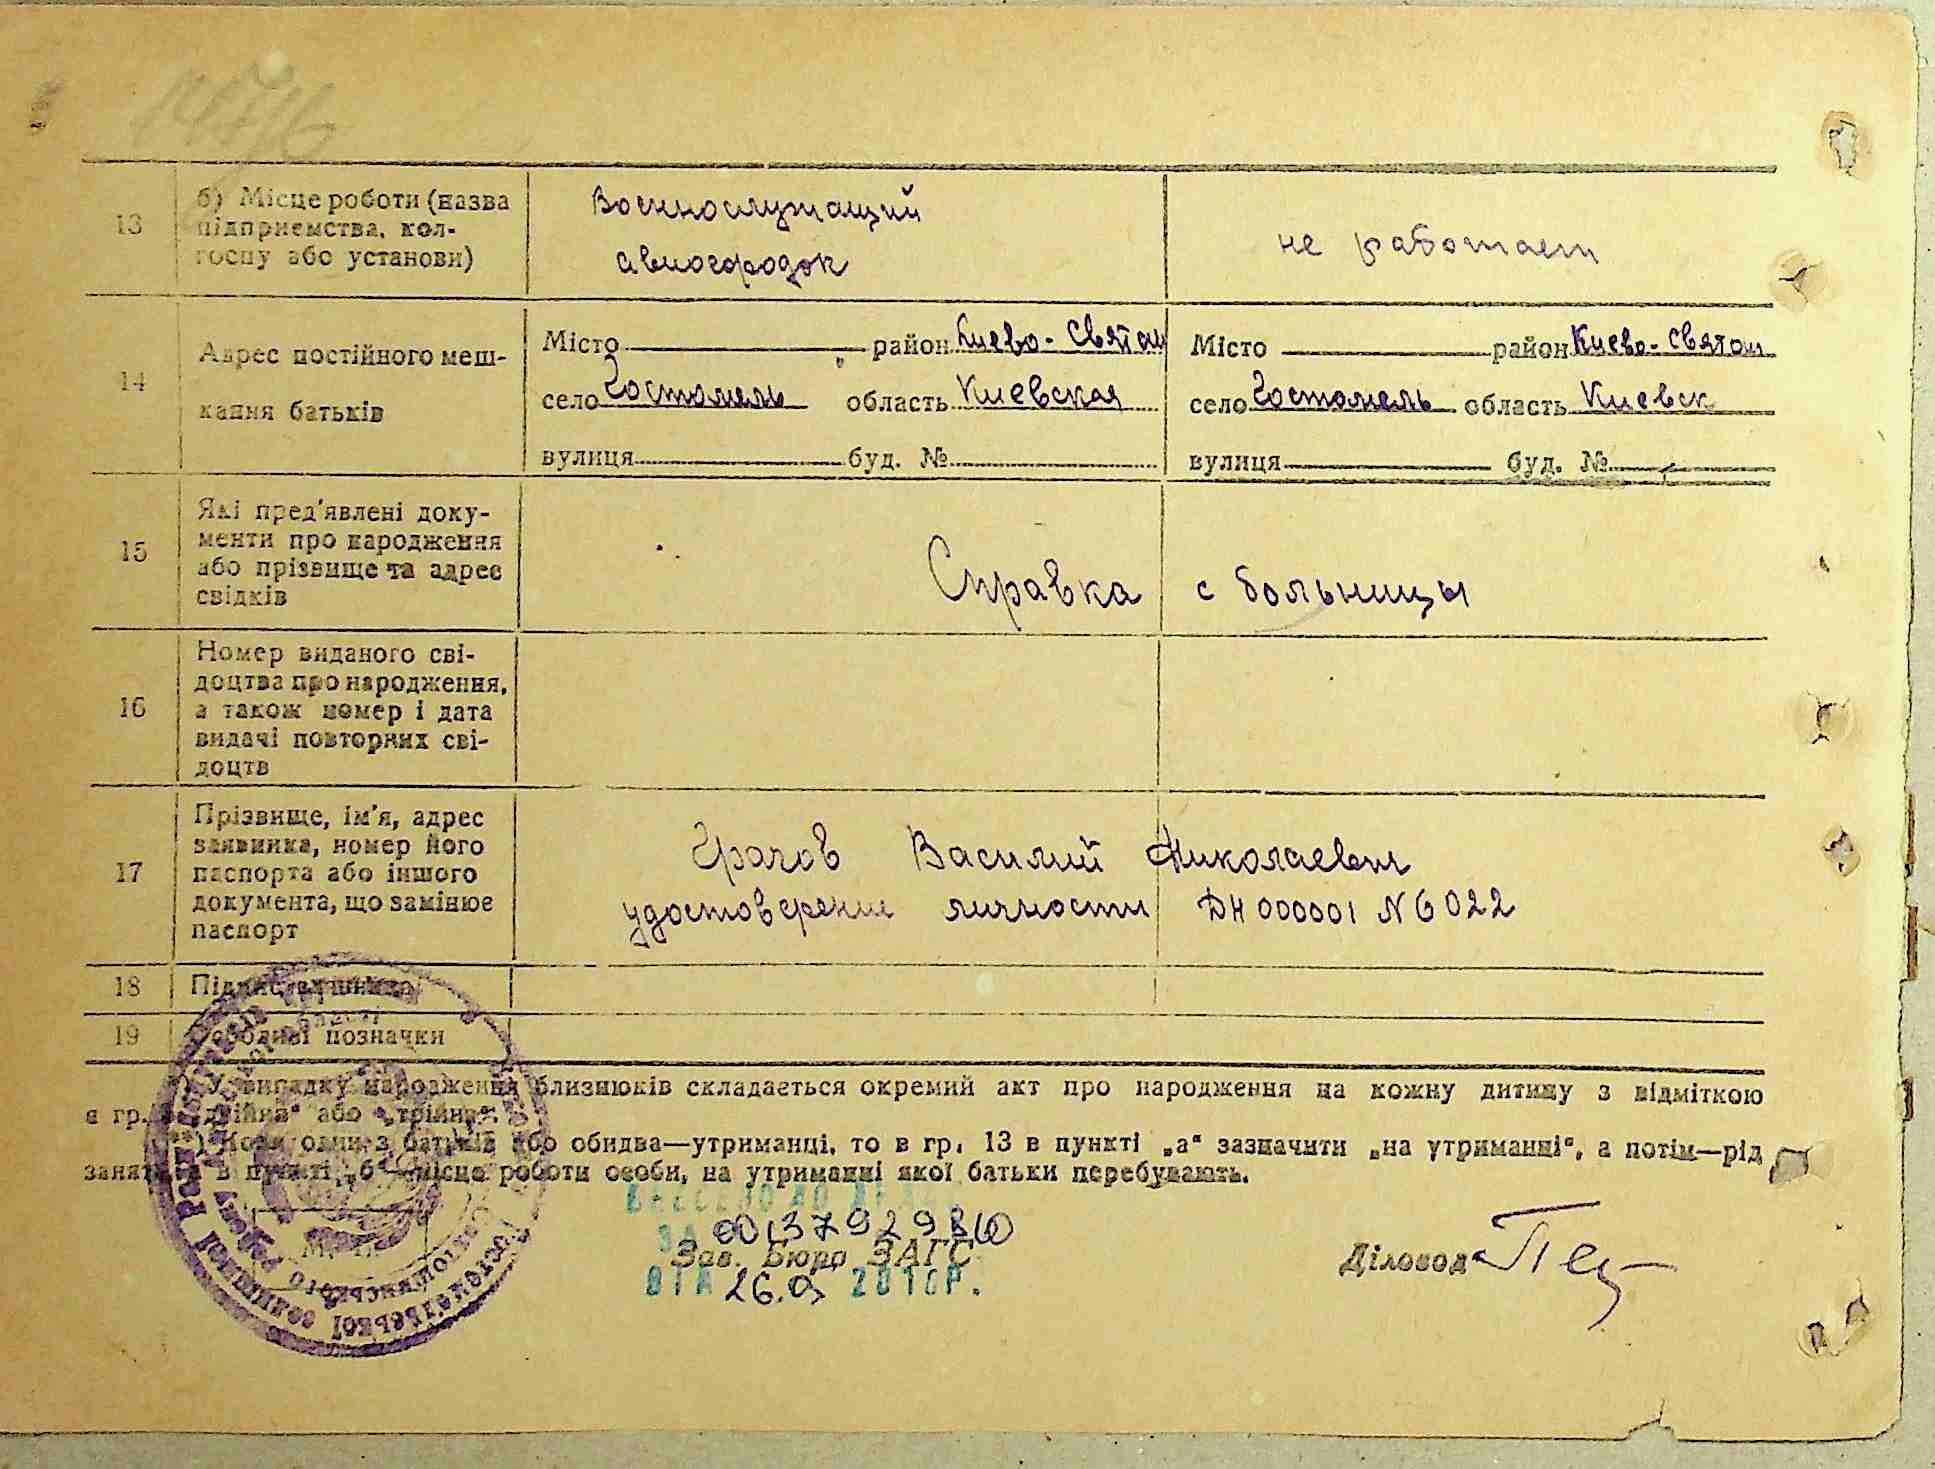 13
б) Місце роботи (назва
підприємства, кол-
госпу або установи)
Военнослужащий
авиогородок
не работает
14
Адрес постійного меш-
кання батьків
Місто район Киево-Святош
село Гостомель область Киевская
вулиця буд. №
Місто район Киево-Святош
село Гостомель область Киевск
вулиця буд. №
15
Які пред'явлені доку-
менти про народження
або прізвище та адрес
свідків
Справка с больницы
16
Номер виданого сві-
доцтва про народження,
а також номер і дата
видачі повторних сві-
доцтв
17
Прізвище, ім'я, адрес
заявника, номер його
паспорта або іншого
документа, що замінює
паспорт
Грачов Василий Николаевич
удостоверение личности ДН 000001 N 6022
18
Підпис заявника
19
Особливі позначки
У випадку народження близнюків складається окремий акт про народження на кожну дитину з відміткою
в гр. „двійня“ або „трійня“.
**) Коли один з батьків або обидва—утриманці, то в гр. 13 в пункті „а“ зазначити „на утриманні“, а потім—рід
занять, в пункті „б“—місце роботи особи, на утриманні якої батьки перебувають.
М. П.
Зав. Бюро ЗАГС
26.0 2016Р.
Діловод